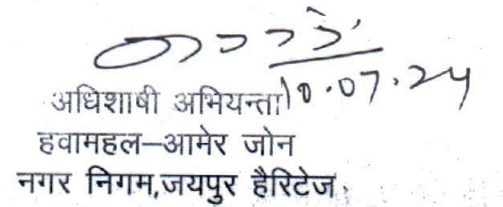 10.07.24
अधिशाषी अभियन्ता
हवामहल–आमेर जोन
नगर निगम,जयपुर हैरिटेज